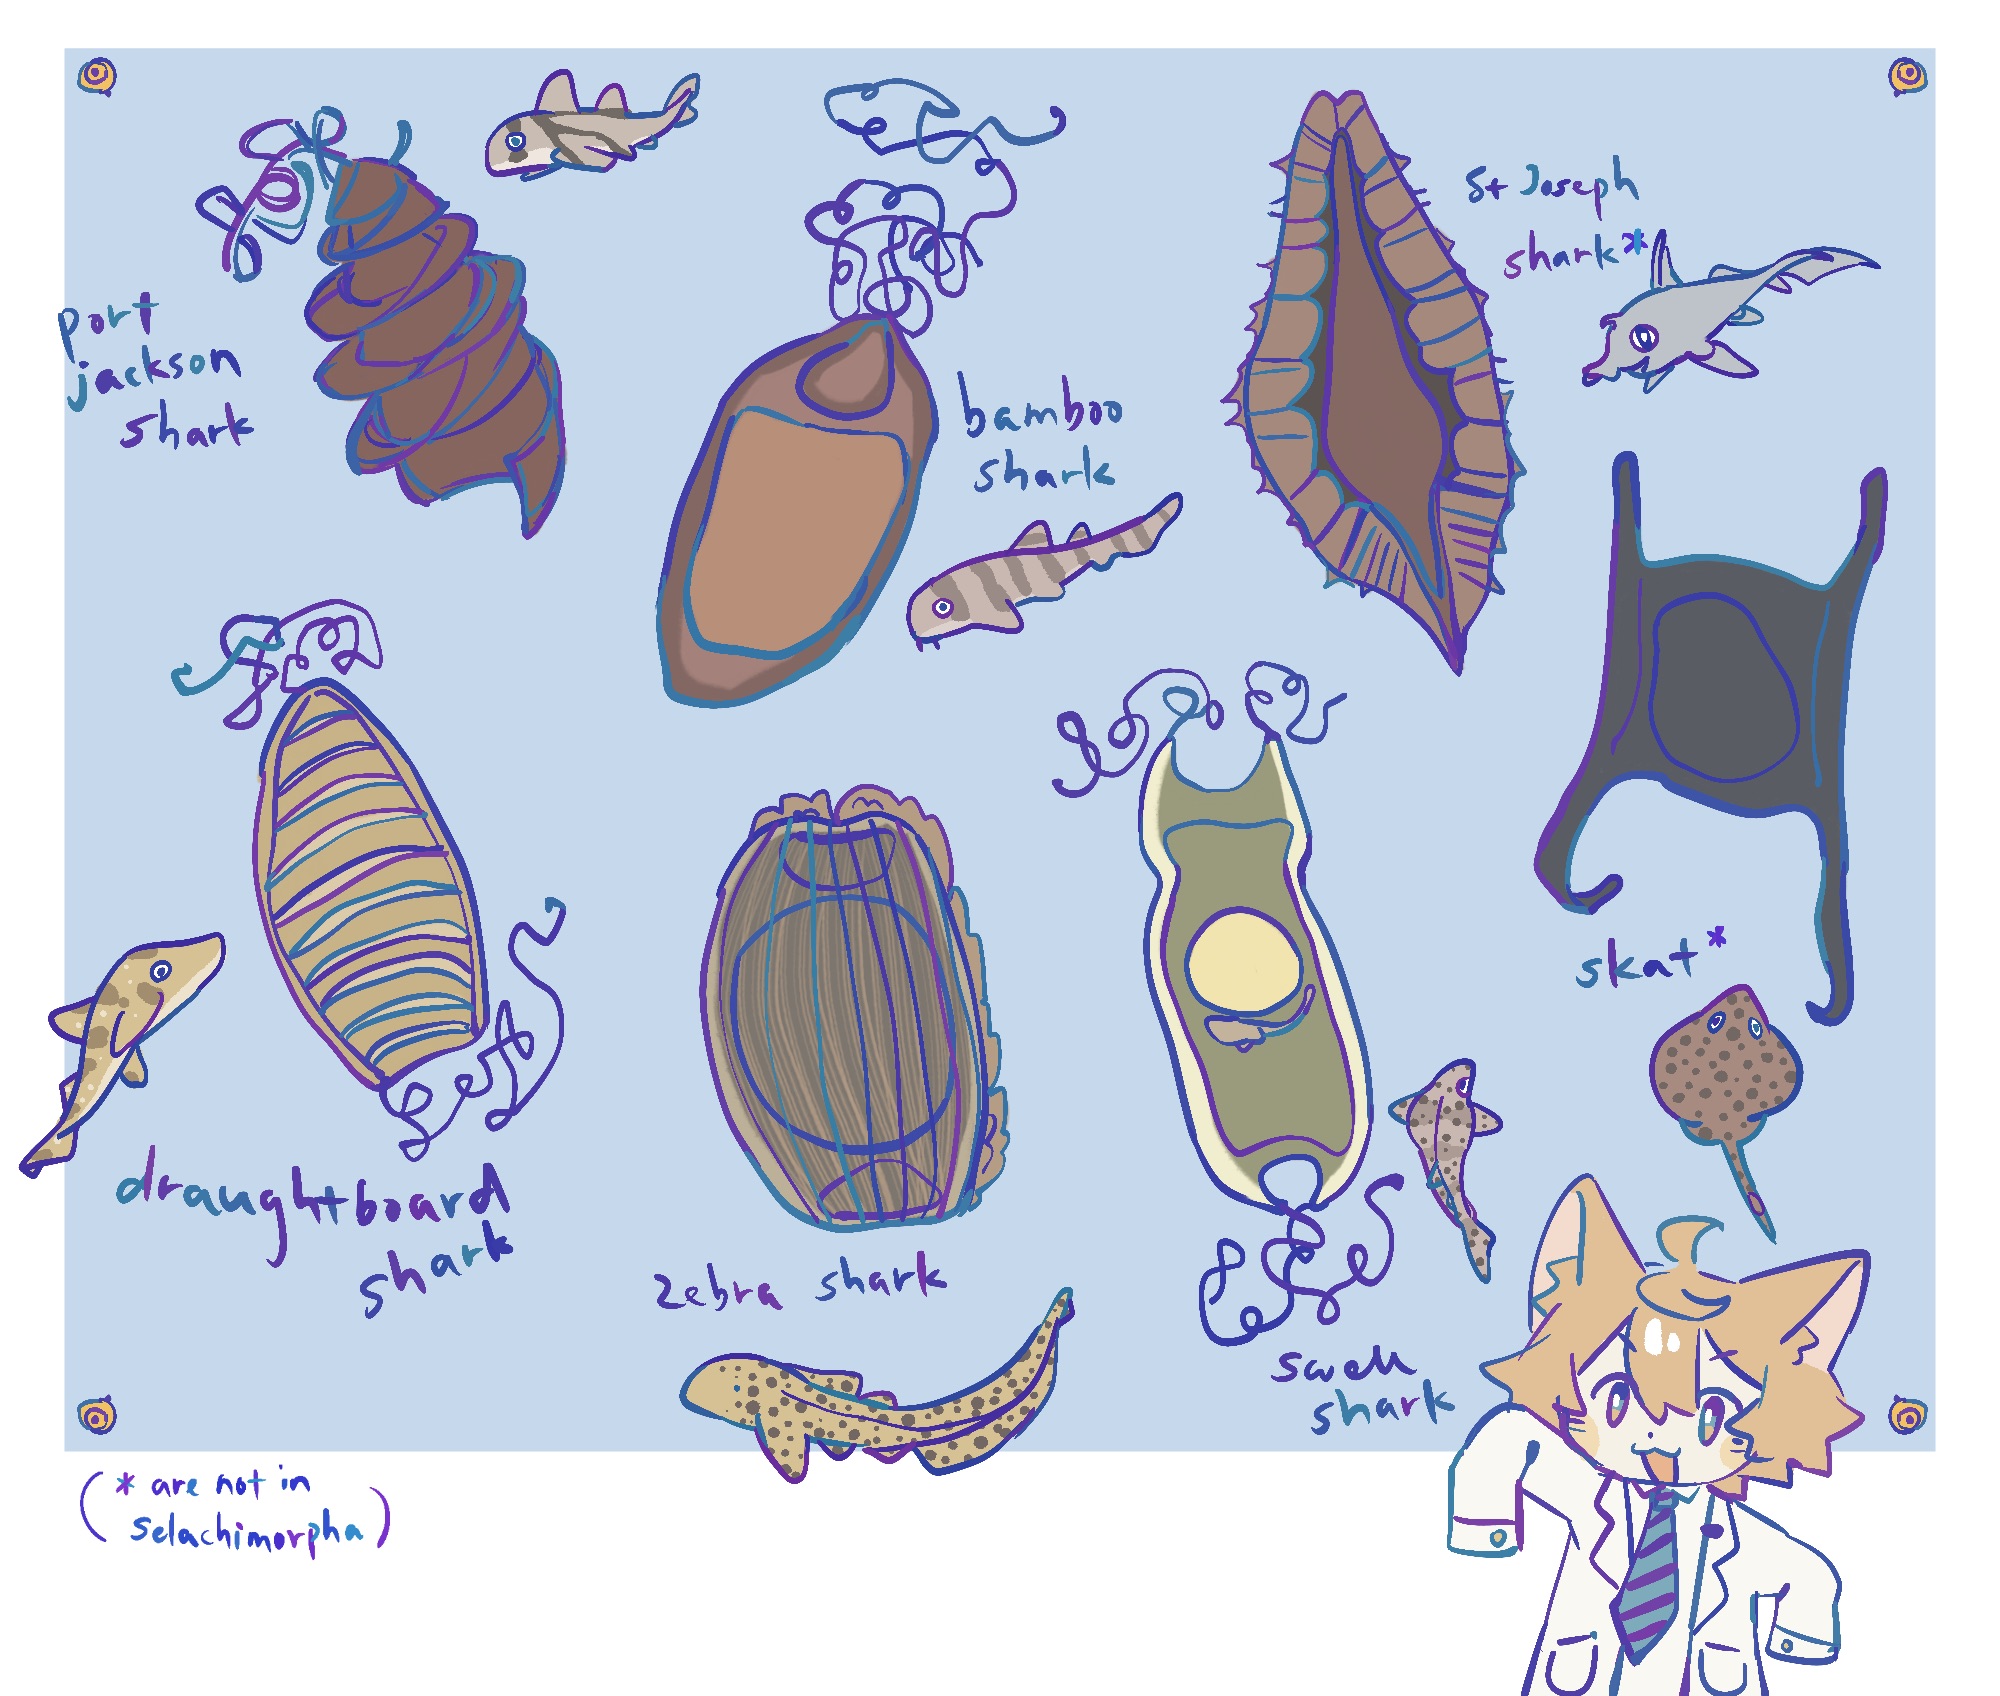 port
jackson
shark
bamboo
shark
St Joseph
shark*
draughtboard
shark
zebra shark
swell
shark
skat*
(* are not in
selachimorpha)